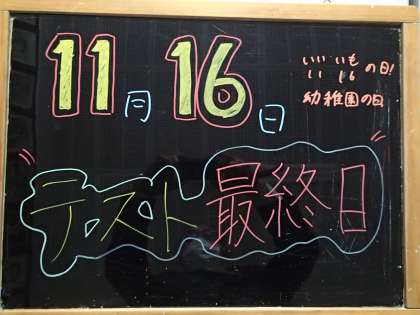 11月16日
いい いも の日!
11 16
幼稚園の日
テスト最終日